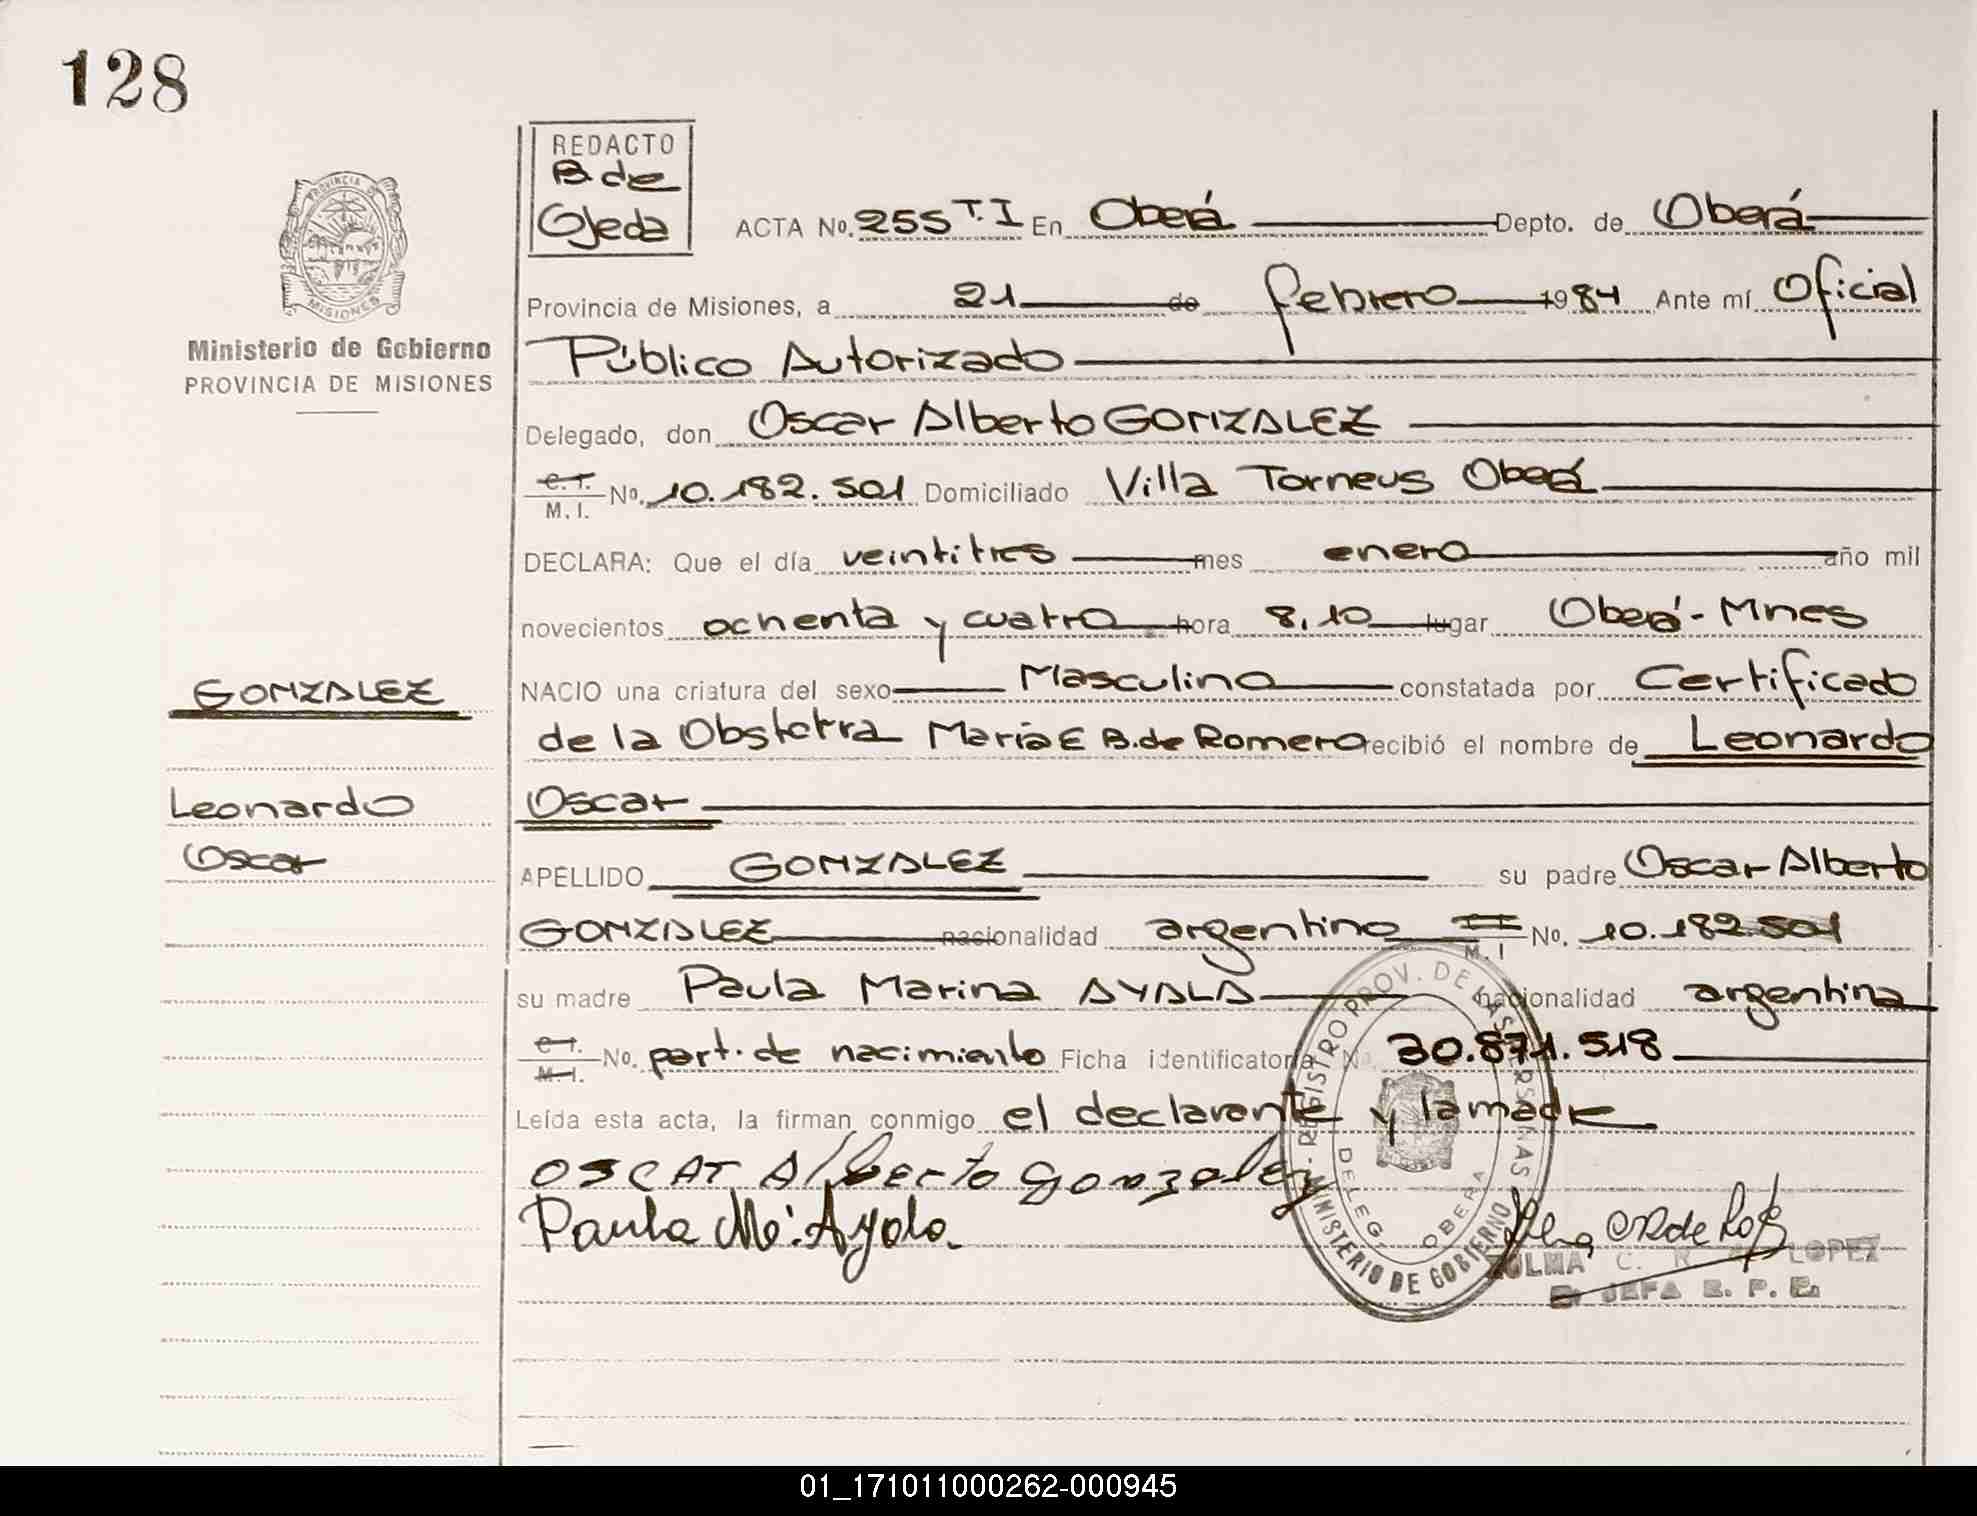 128
REDACTO
B de
Ojeda
PROVINCIA DE
MISIONES
Ministerio de Gobierno
PROVINCIA DE MISIONES
ACTA No. 255 T.I En Oberá Depto. de Oberá
Provincia de Misiones, a 21 de febrero 1984 Ante mí Oficial
Público Autorizado
Delegado, don Oscar Alberto GONZALEZ
C.I. M.I. No. 10.182.501 Domiciliado Villa Torneus Oberá
DECLARA: Que el día veintitres mes enero año mil
novecientos ochenta y cuatro hora 8,10 lugar Oberá - Mnes
GONZALEZ
NACIO una criatura del sexo Masculino constatada por Certificado
de la Obstetra María E B. de Romero recibió el nombre de Leonardo
Leonardo
Oscar
Oscar
APELLIDO GONZALEZ su padre Oscar Alberto
GONZALEZ nacionalidad argentino M.I No. 10.182.501
su madre Paula Marina AYALA nacionalidad argentina
C.I. M.I. No. part. de nacimiento Ficha identificatoria No. 30.871.518
Leída esta acta, la firman conmigo el declarante y la madre
OSCAR Alberto Gonzalez
Paula Ma. Ayala
REGISTRO PROV. DE LAS PERSONAS
MINISTERIO DE GOBIERNO
DELEG. OBERA
ZULMA C. R. LOPEZ
JEFA R. P. P.
01_171011000262-000945